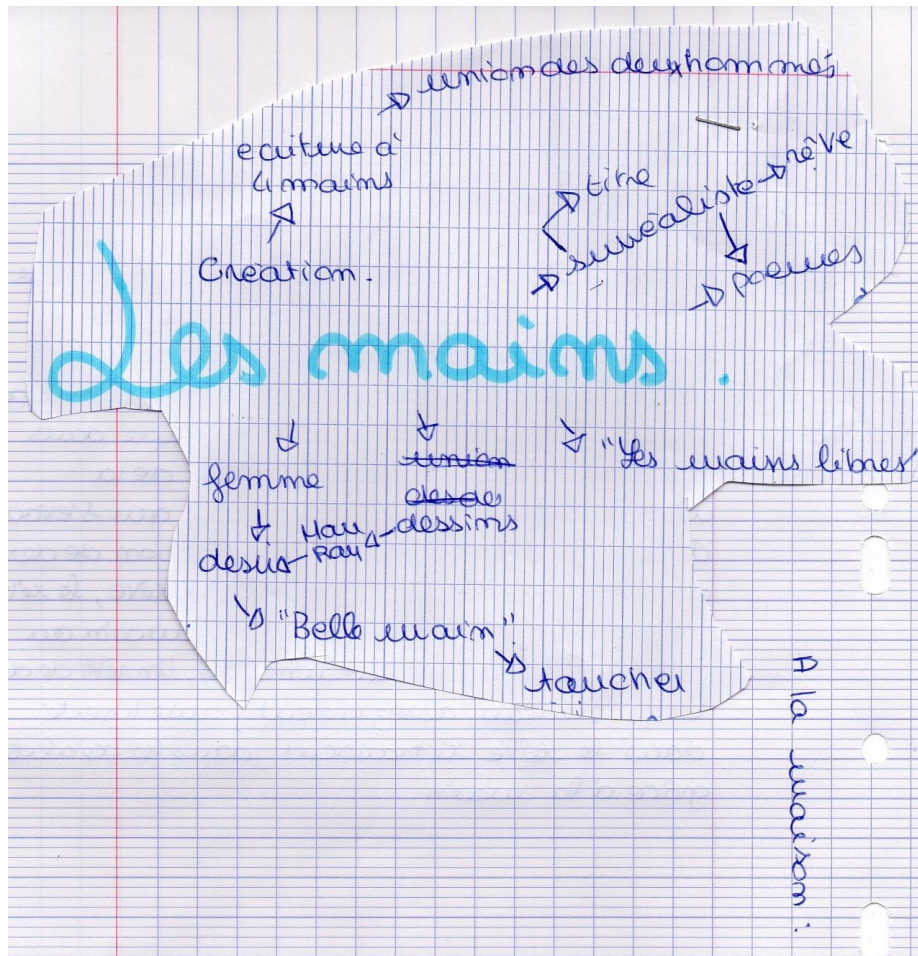 union des deux hommes
ecriture à
4 mains
Création.
titre
surréaliste
rêve
poemes
Les mains.
femme
union
des de
dessins
"Les mains libres"
desir
Man
Ray
"Belle main"
toucher
A la maison :